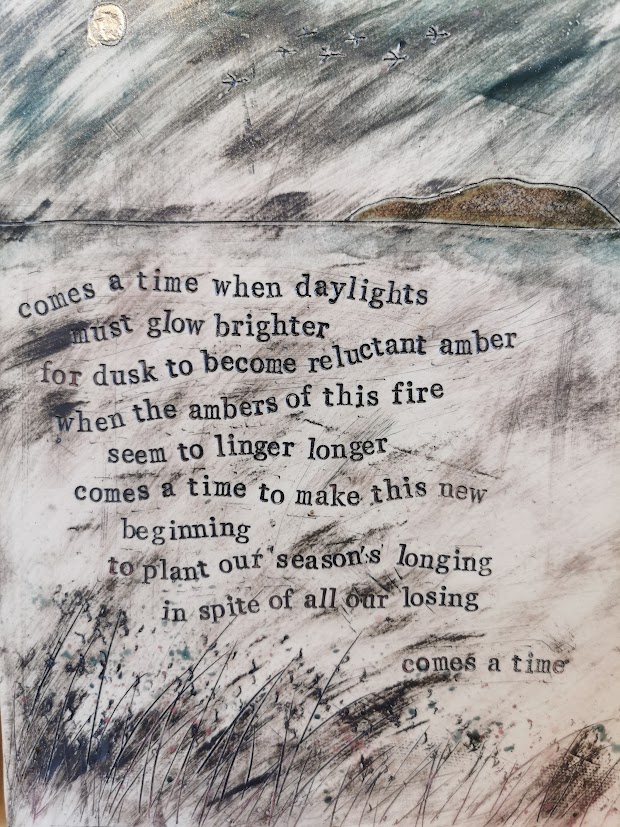 comes a time when daylights
must glow brighter
for dusk to become reluctant amber
when the ambers of this fire
seem to linger longer
comes a time to make this new
beginning
to plant our season's longing
in spite of all our losing
comes a time